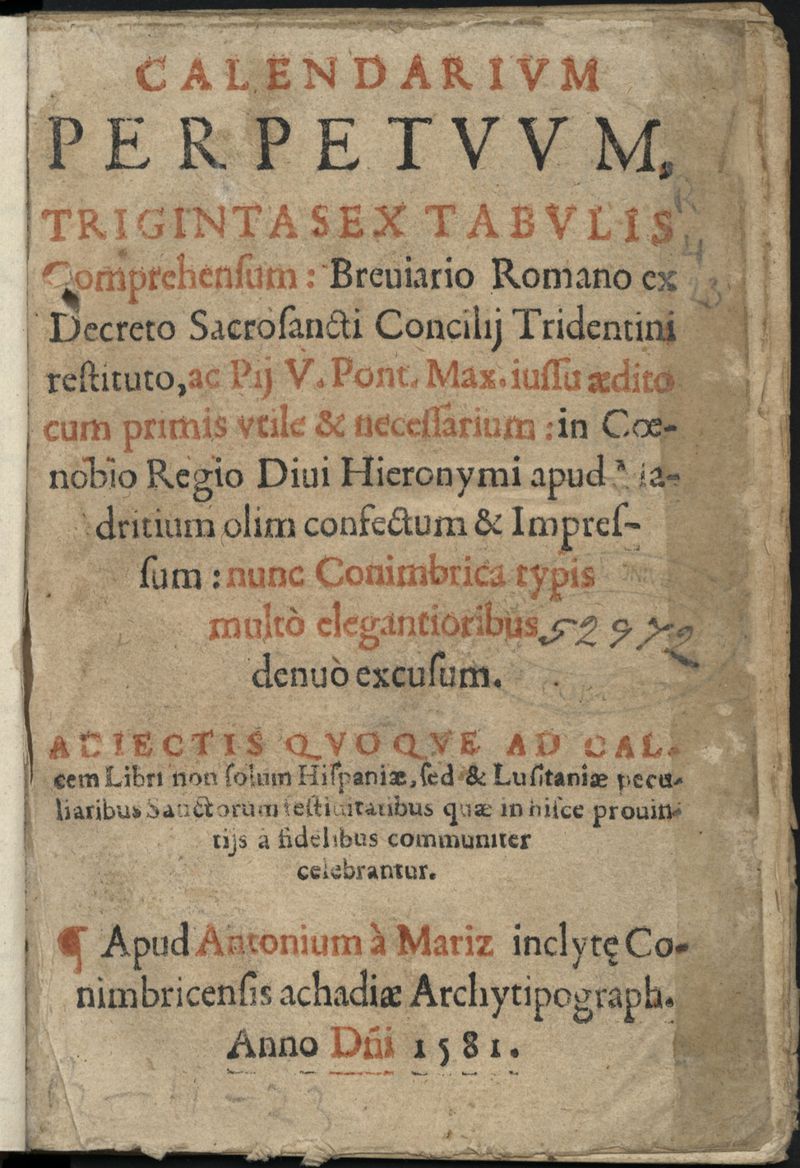 CALENDARIVM
PERPETVVM,
TRIGINTASEX TABVLIS
Comprehensum: Breuiario Romano ex
Decreto Sacrosancti Concilij Tridentini
restituto, ac Pij V. Pont. Max. iussu ædito
cum primis vtile & necessarium: in Cœ-
nobio Regio Diui Hieronymi apud Ma-
dritium olim confectum & Impres-
sum: nunc Conimbrica typis
multò elegantioribus
52972
denuò excusum.
ADIECTIS QVOQVE AD CAL-
cem Libri non solum Hispaniæ, sed & Lusitaniæ pecu-
liaribus Sanctorum festiuitatibus quæ in hisce prouin-
tijs a fidelibus communiter
celebrantur.
¶ Apud Antonium à Mariz inclytę Co-
nimbricensis achadiæ Archytipograph.
Anno Dñi 1581.
R
4
23